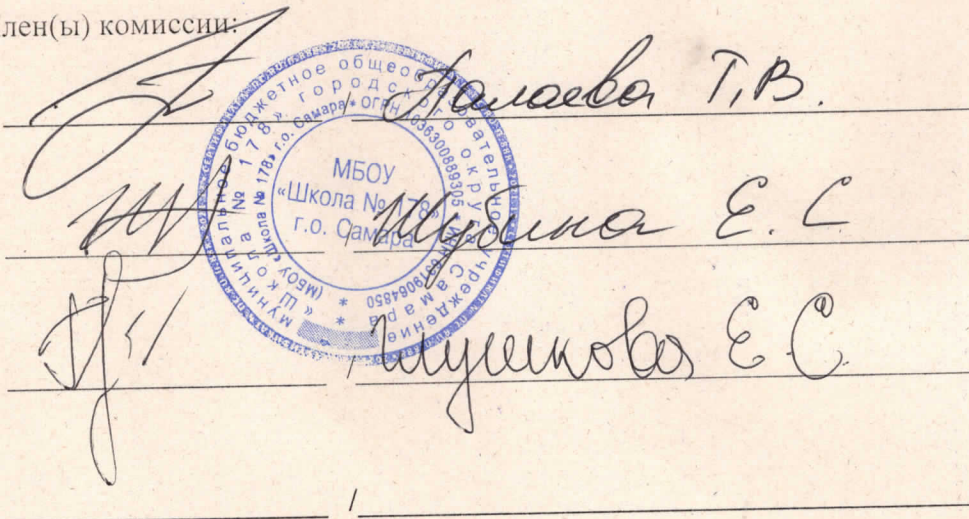 лен(ы) комиссии:
/ Палаева Т.В.
/ Шубина Е. С
/ Глушкова Е.С.
/
муниципальное бюджетное общеобразовательное учреждение
«Школа № 178» городского округа Самара
(МБОУ «Школа № 178» г.о. Самара) * ОГРН 1036300889305 * ИНН 6319064850 *
МБОУ
«Школа № 178»
г.о. Самара